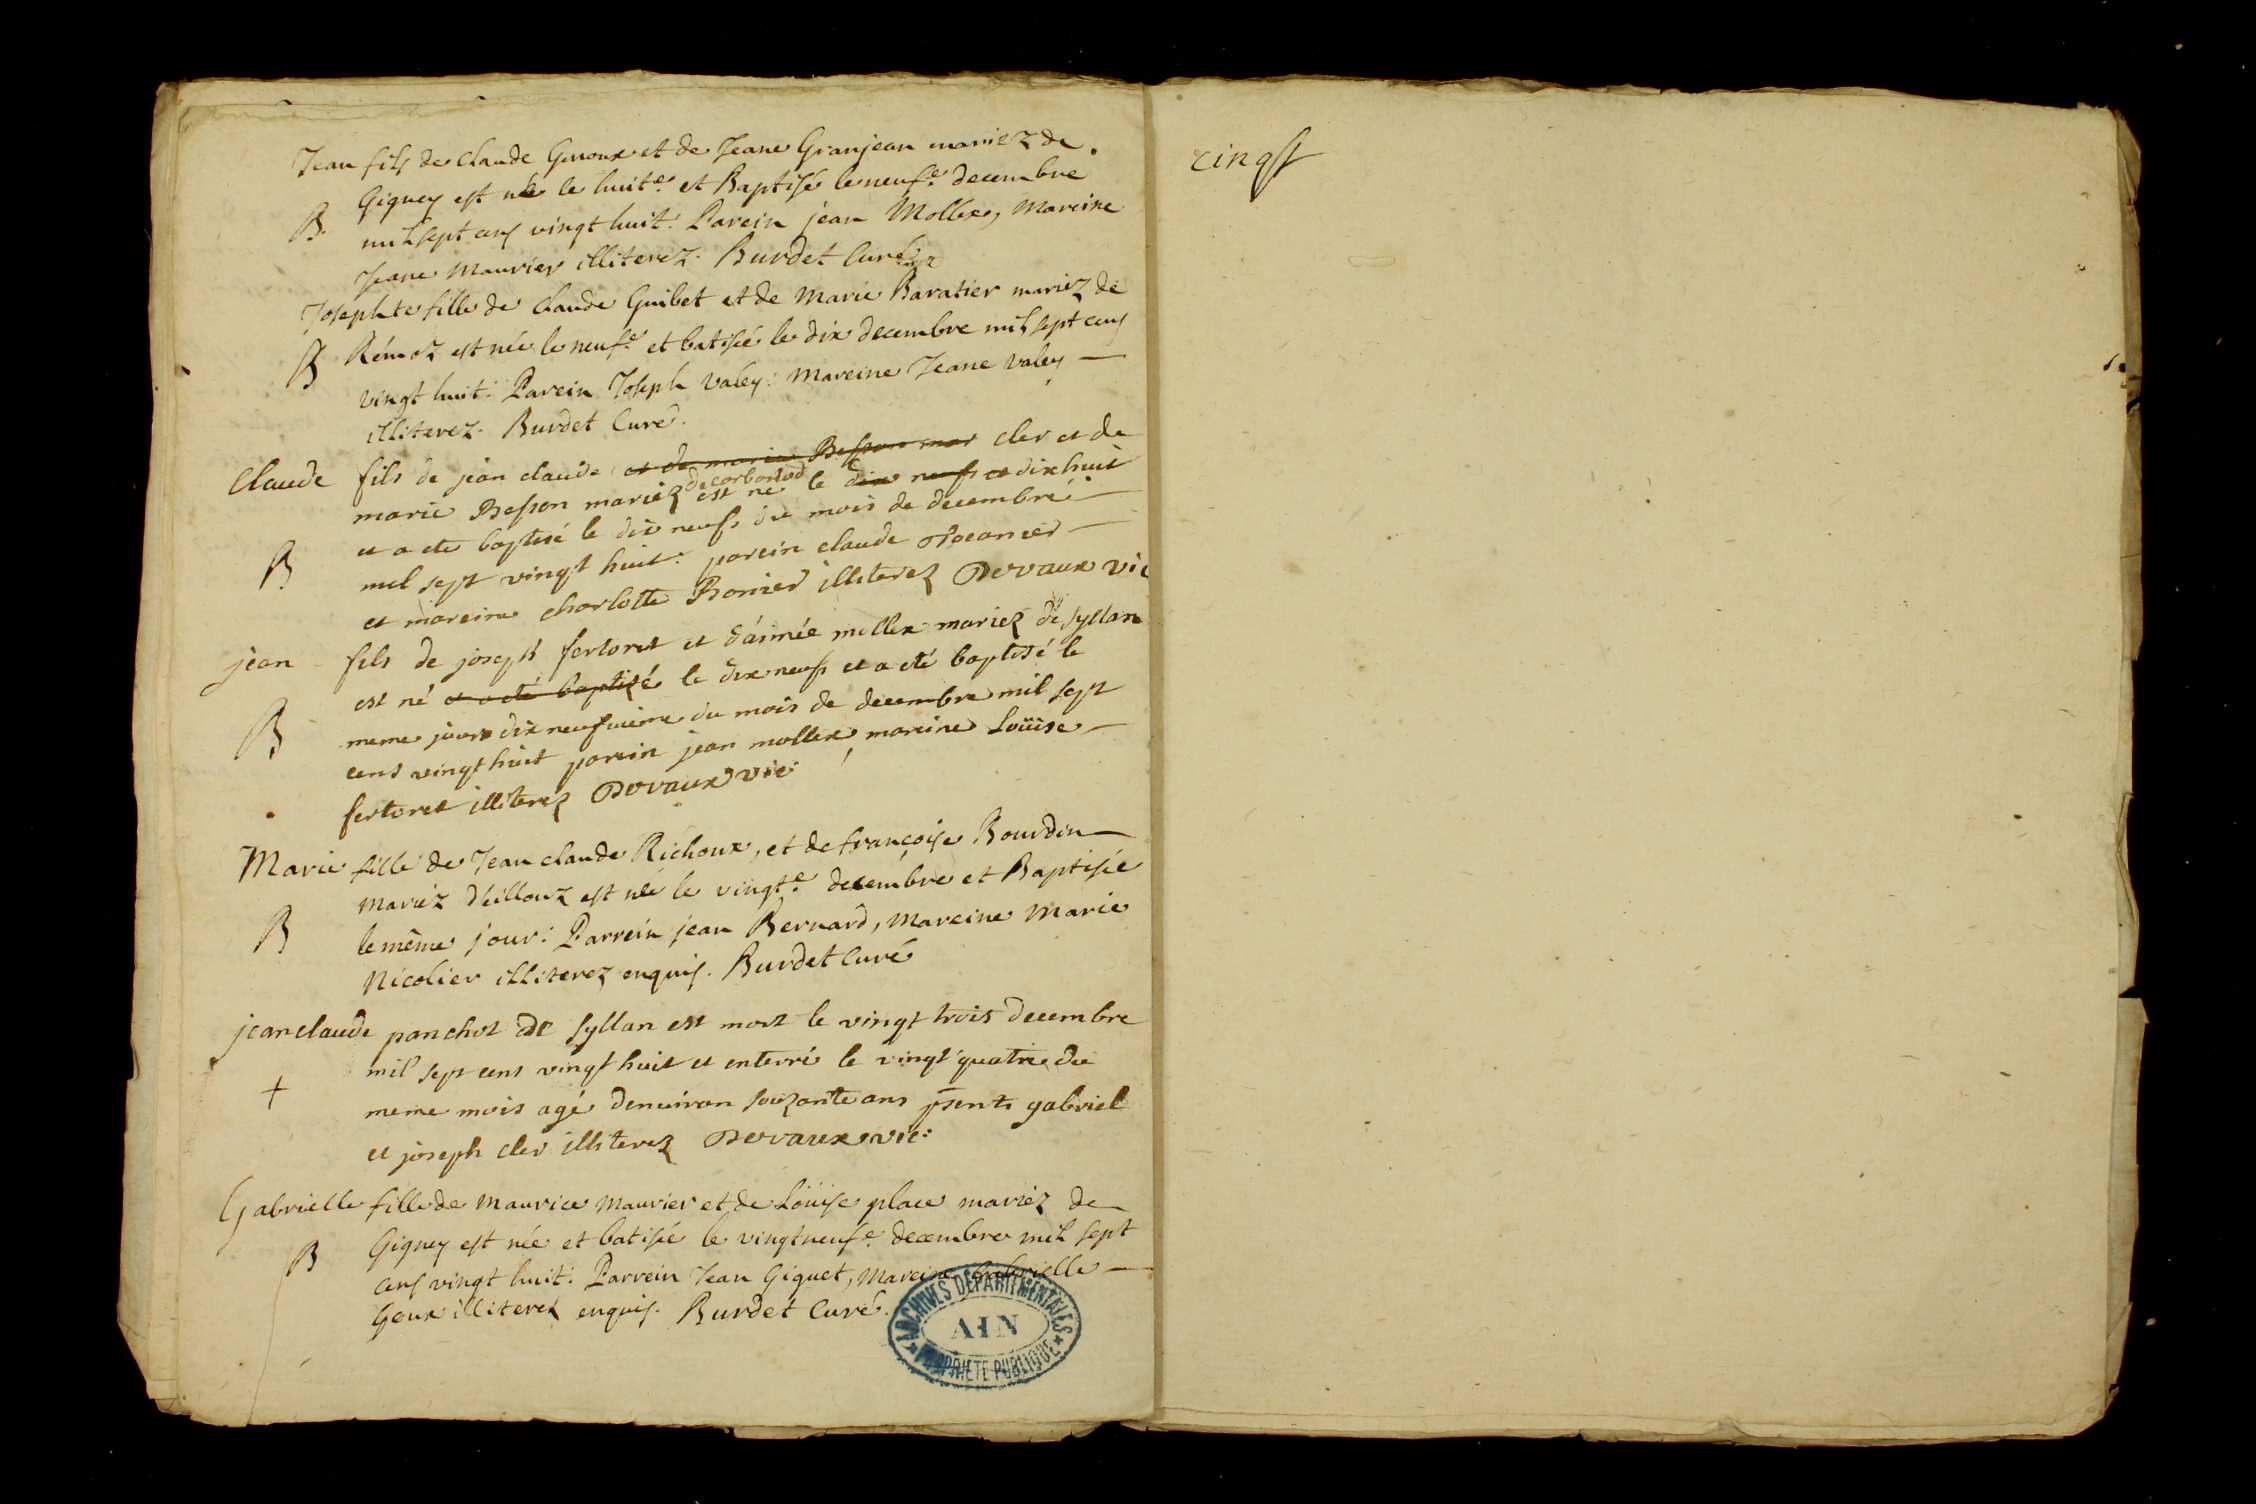 Jean fils de claude Genoux et de Jeane Granjean mariez de
Giguey est né le huite. et Baptisé le neufe. decembre
B
mil sept cens vingt huit. Parein jean Mollex, Mareine
Jeane Maurier illiterez. Burdet Curé
Josephte fille de claude Guibet et de Marie Baratier mariez de
B Rémoz est née le neufe. et batisée le dix decembre mil sept cens
vingt huit. Parein Joseph Valey. Mareine Jeane Valey
illiterez. Burdet Curé.
Claude fils de jean claude et de marie Besson mar cler et de
marie Besson mariez de corbonod est né le dix neufs et dix huit
et a ete baptisé le dix neufs du mois de decembre
B mil sept vingt huit. parein claude
et mareine charlotte Bonier illiterez Devaux vic
jean fils de joseph fertoret et d'aimée mollex mariez de syllan
est né et a eté baptizé le dix neufs et a eté baptisé le
B meme jour dix neufvieme du mois de decembre mil sept
cens vingt huit parein jean mollex, mareine Loüise
fertoret illiterez Devaux vic:
Marie fille de Jean claude Richoux, et de françoise Bourdin
mariez d'eillouz est née le vingte. decembre et Baptisée
B le même jour. Parrein jean Bernard, Mareine Marie
Nicolier illiterez enquis. Burdet Curé
jean claude panchot de syllan est mort le vingt trois decembre
mil sept cens vingt huit et enterré le vingt quatre du
+ meme mois agé d'enuiron soixante ans psents gabriel
et joseph cler illiterez Devaux vic:
Gabrielle fille de Maurice Maurier et de Loüise place mariez de
Giguey est née et batisée le vingtneufe. decembre mil sept
B cens vingt huit. Parrein Jean Giguet, Mareine Gabrielle
Goux illiterez enquis. Burdet Curé.
ARCHIVES DÉPARTEMENTALES
AIN
PROPRIÉTÉ PUBLIQUE
cinqt